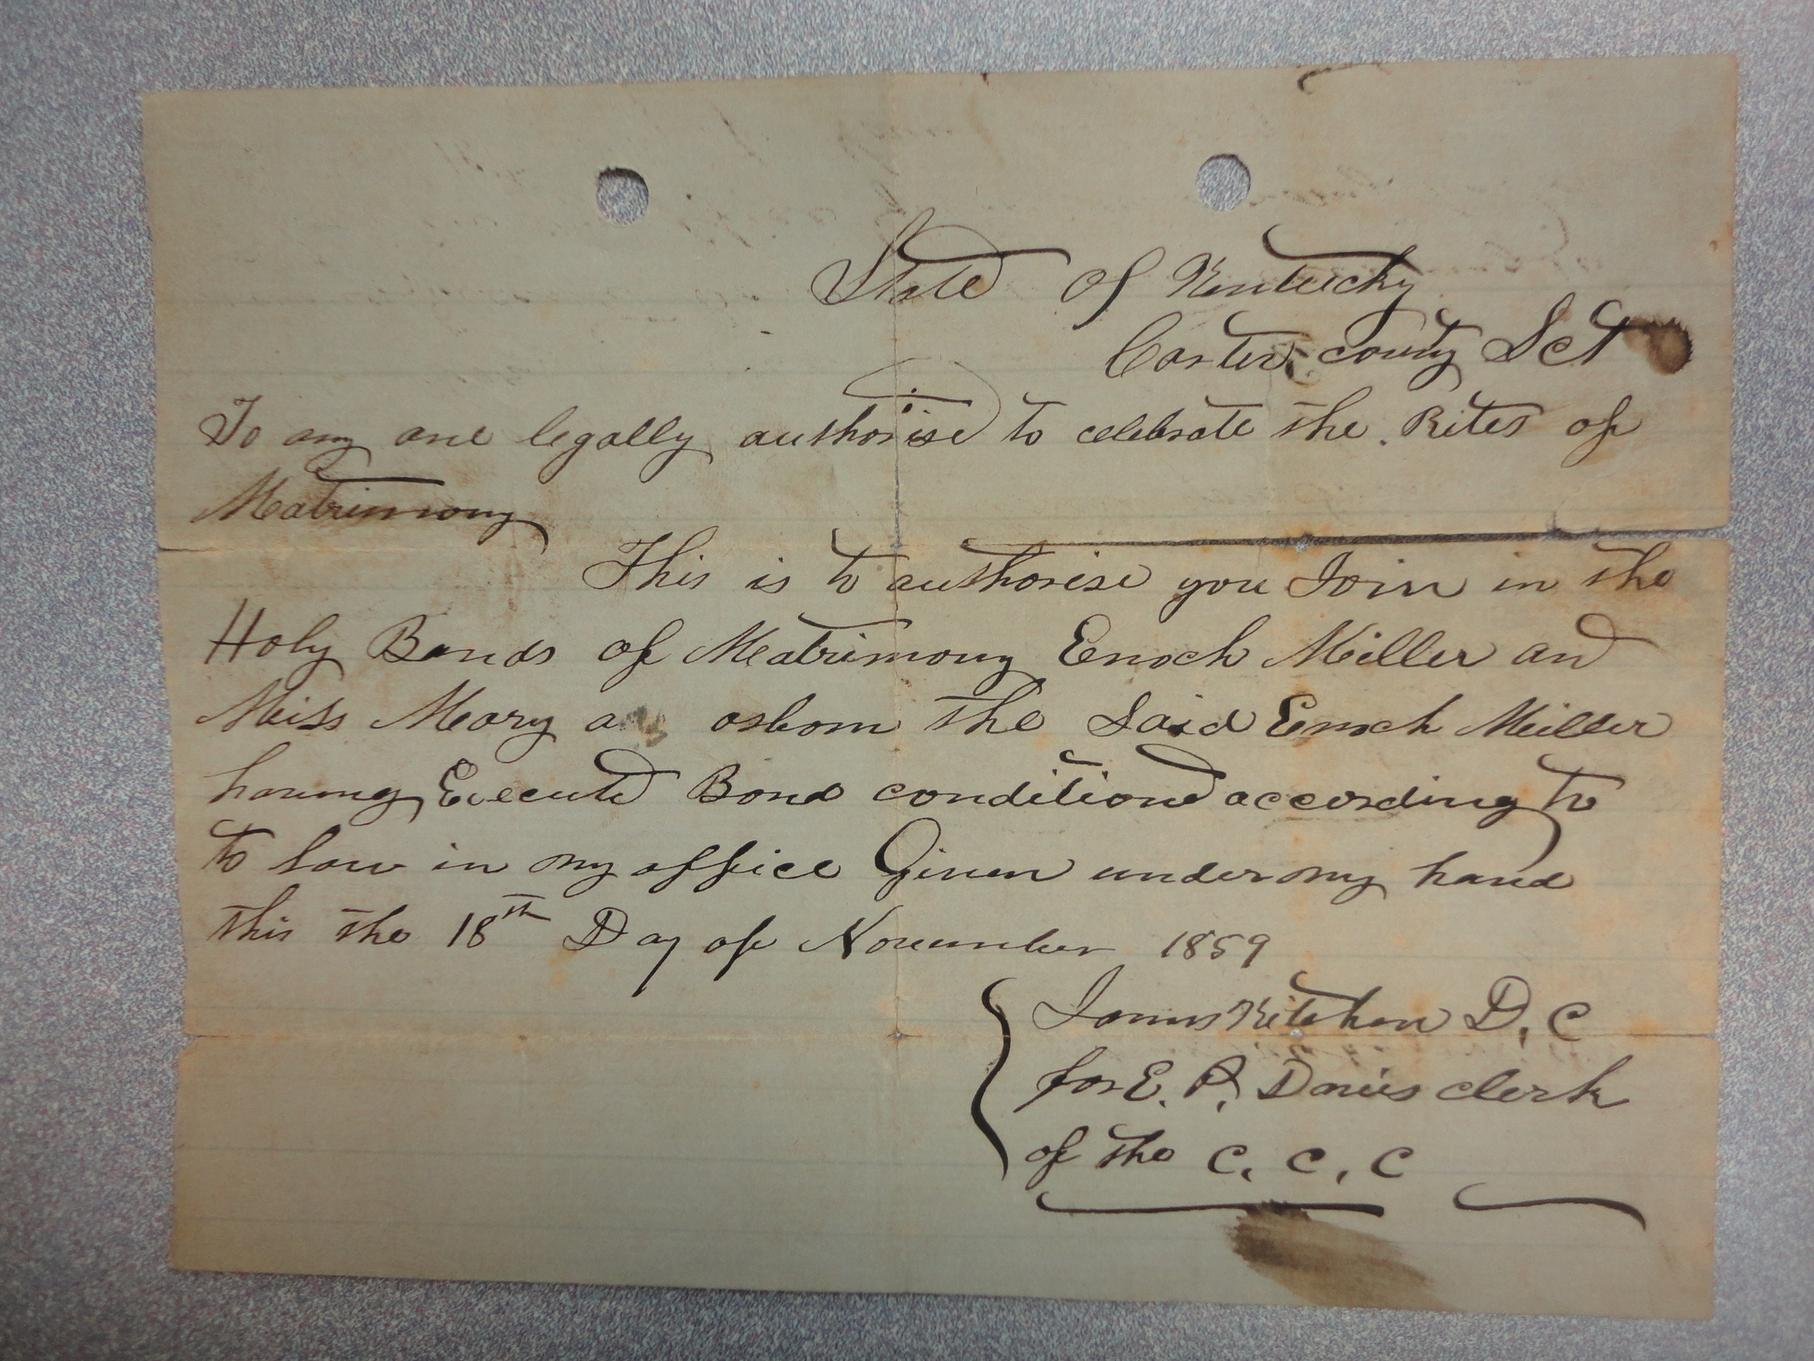 State of Kentucky
Carter county Sct
To any one legally authorise to celebrate the Rites of
Matrimony
This is to authorise you Join in the
Holy Bands of Matrimony Enoch Miller and
Miss Mary osborn the Said Enoch Miller
having Executed Bond conditiond according to
to law in my office Given under my hand
this the 18th Day of November 1859
James Kitchen D. C
for E. P. Davis clerk
of the C. C. C